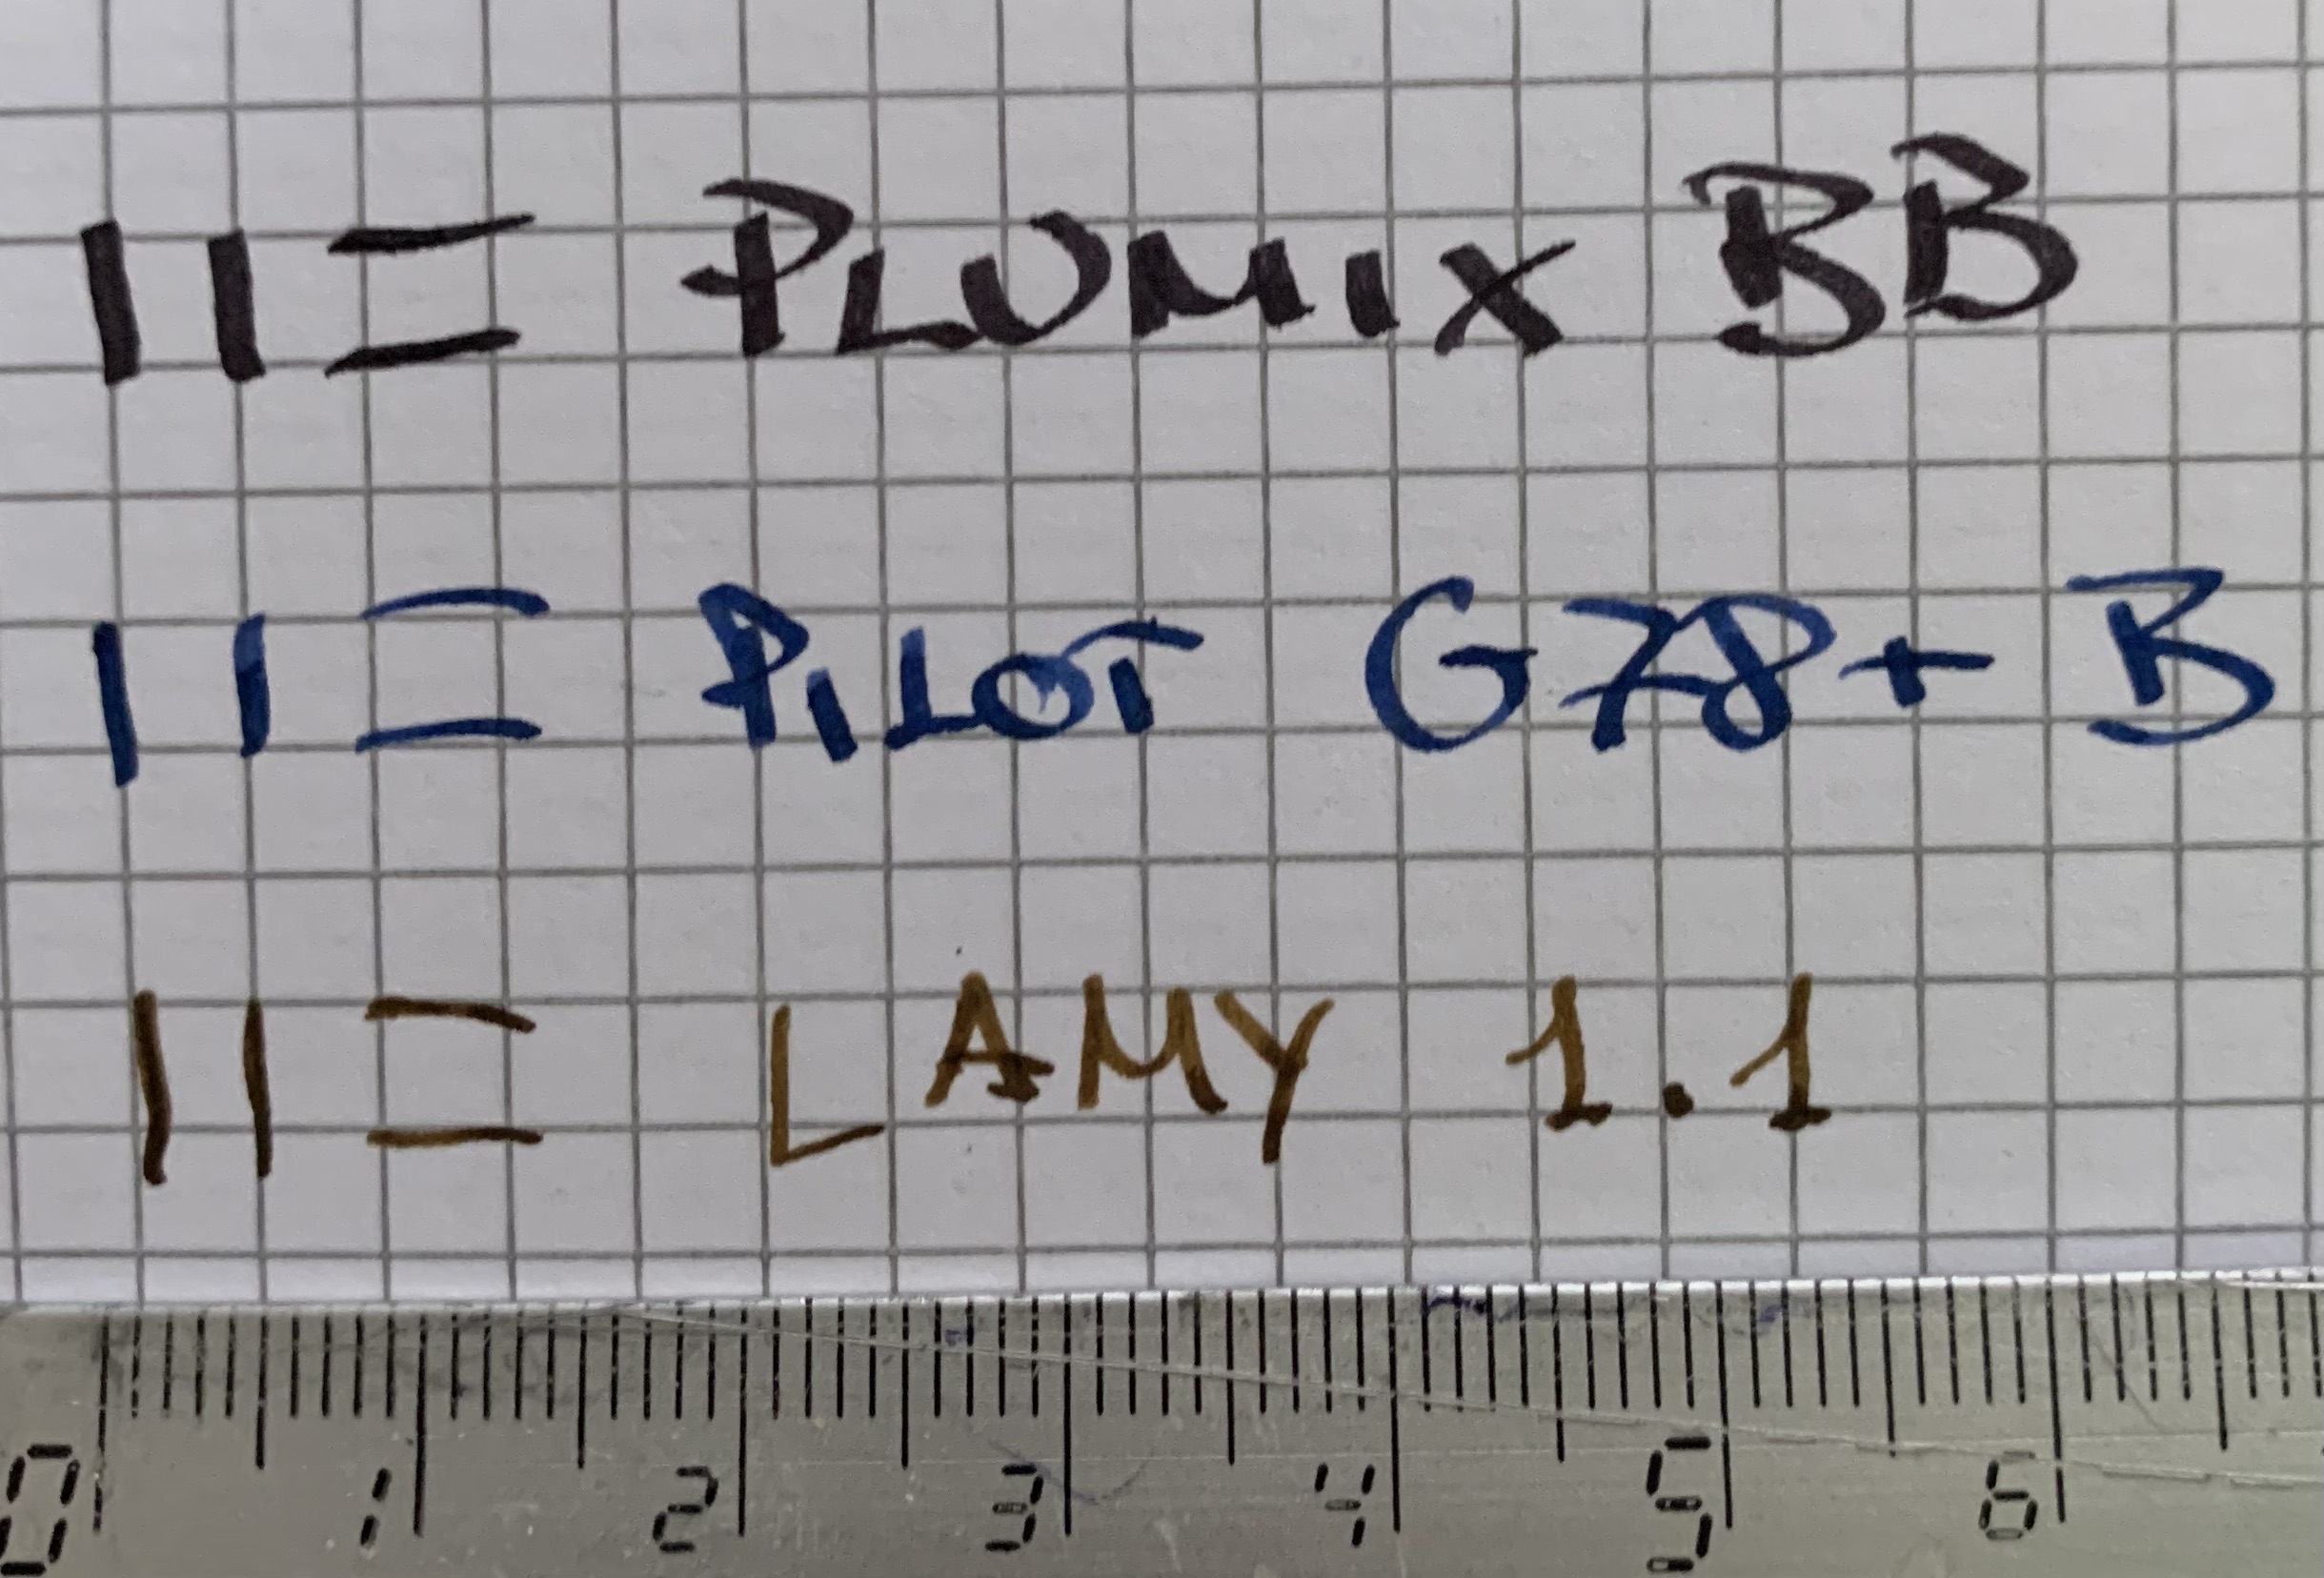 11= PLUMIX BB
11= PILOT G78+ B
11= LAMY 1.1
0 1 2 3 4 5 6